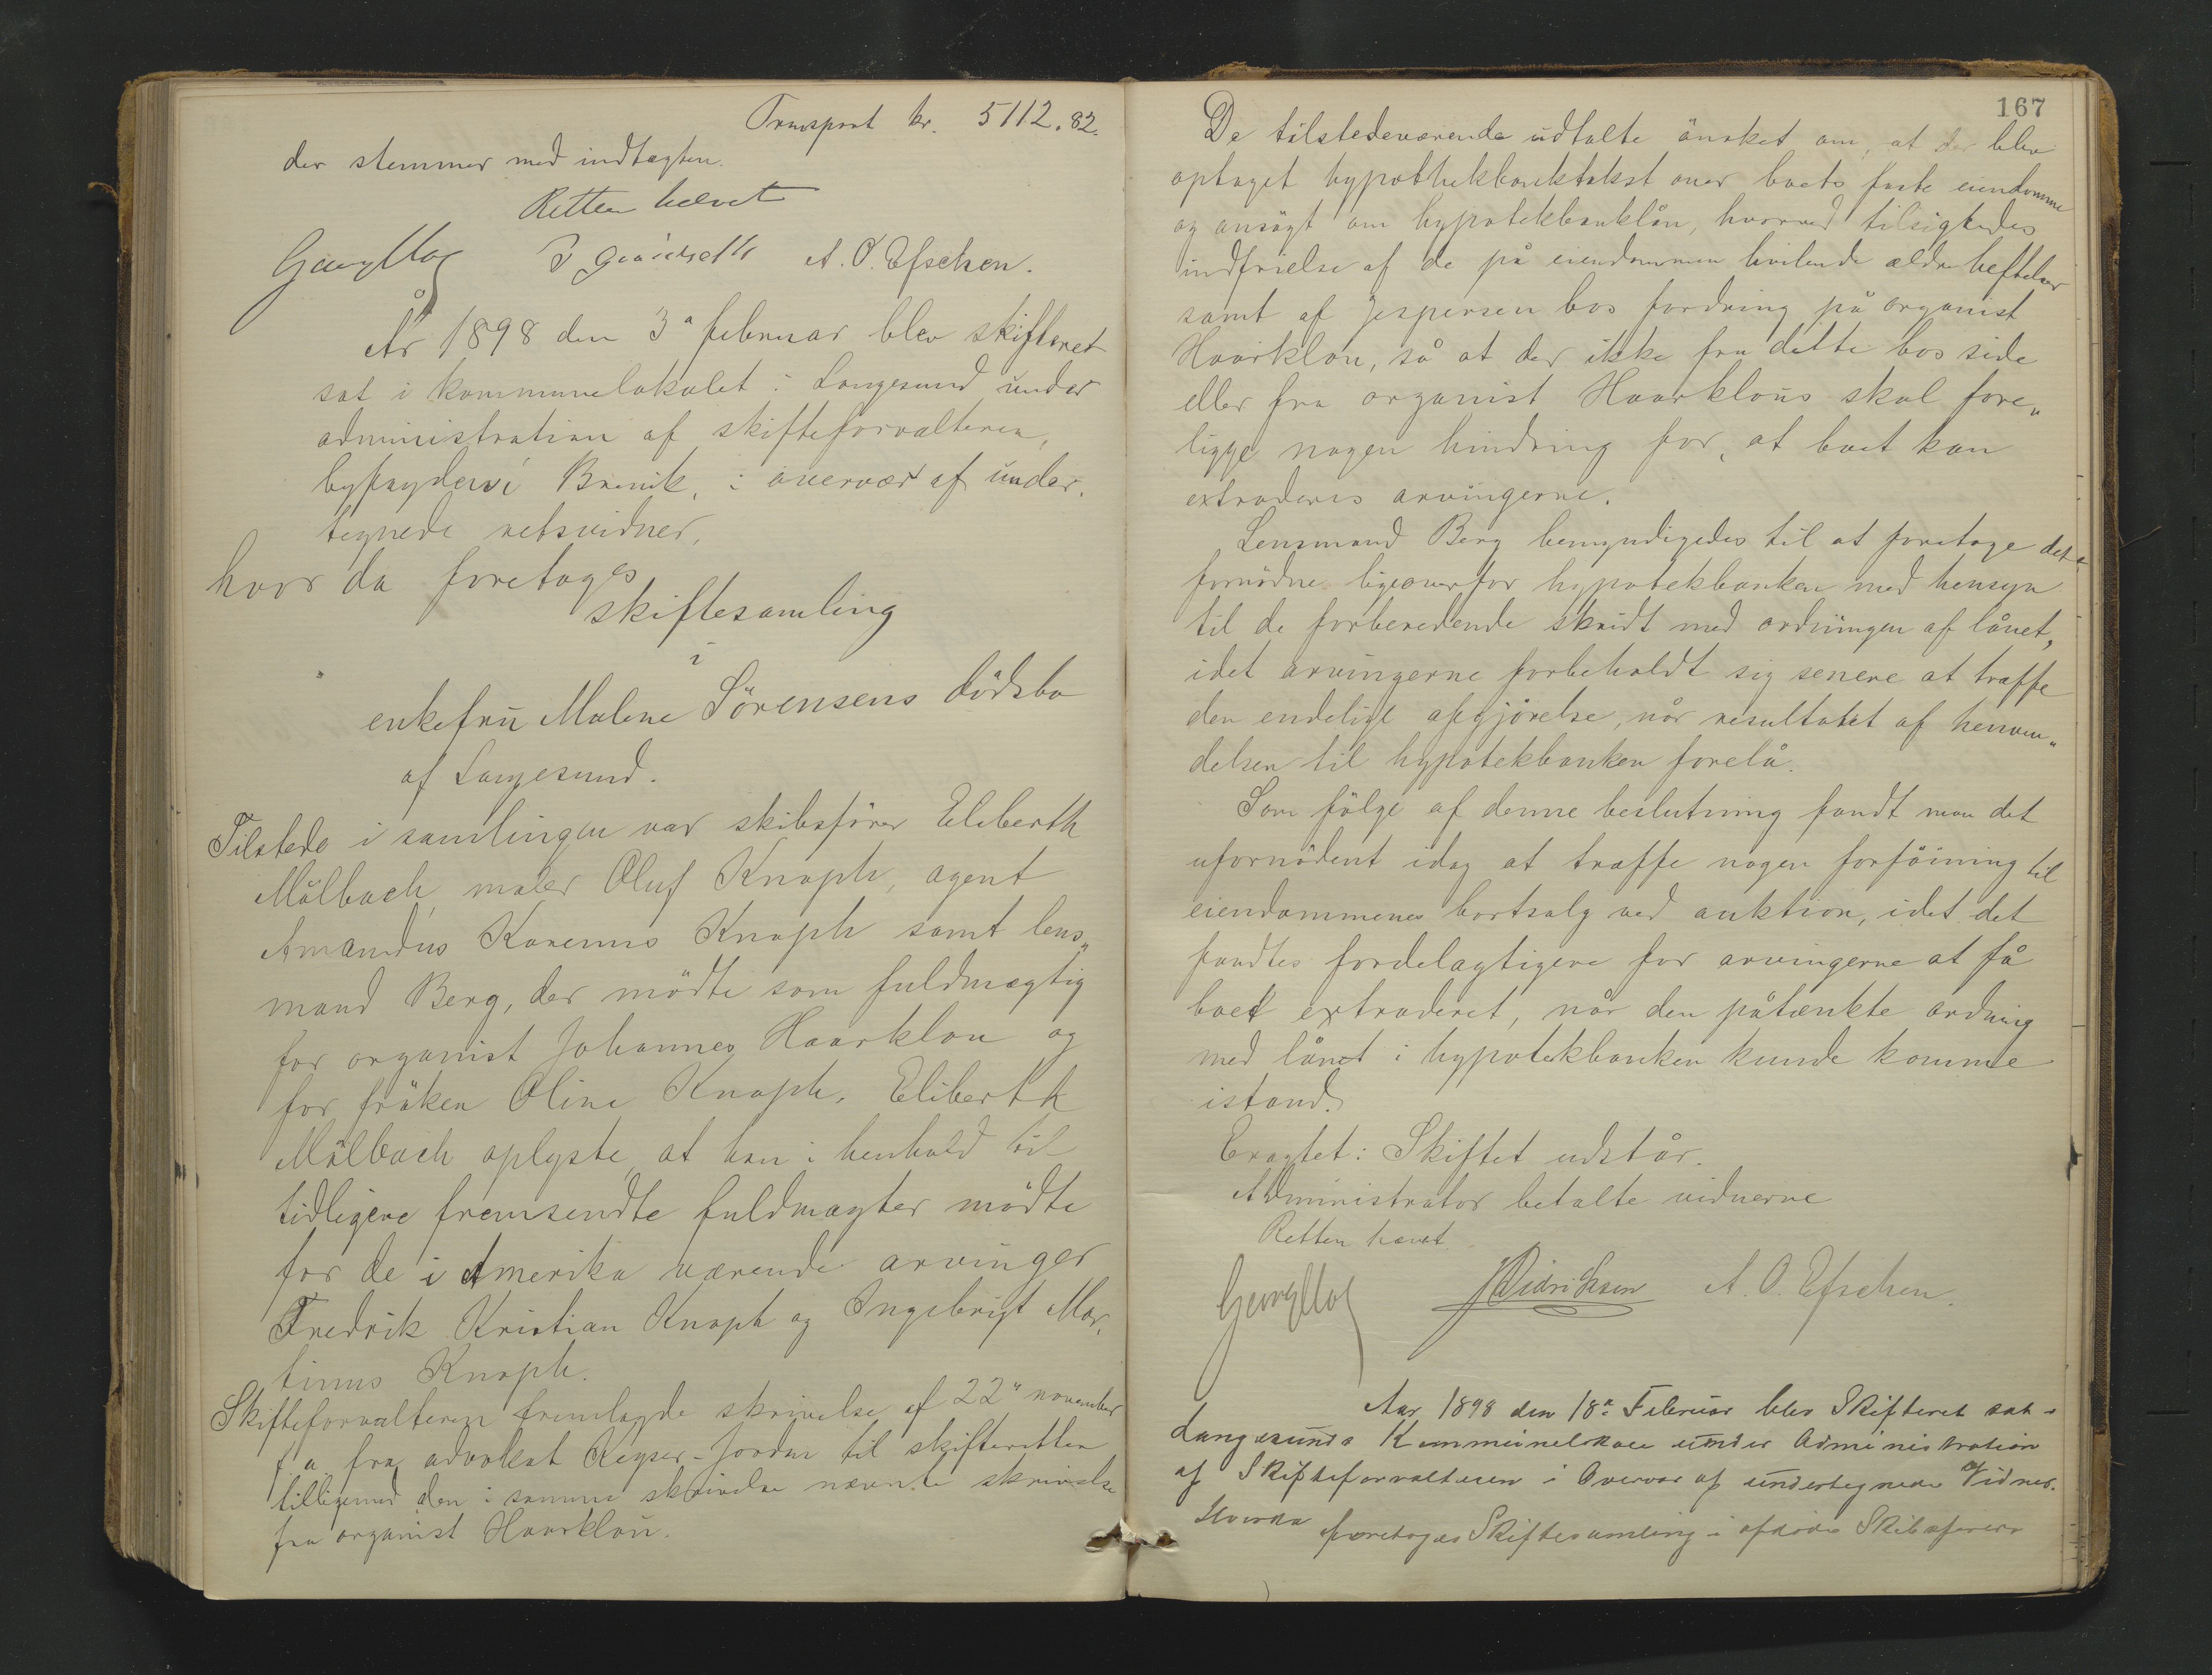 Transport kr. 5112.82.
der stemmer med indtægten.
Retten hævet
A. O. Efschen.
År 1898 den 3ª februar blev skifteret
sat i kommunelokalet i Langesund under
administration af skifteforvalteren,
byfogden i Brevik, i overvær af under,
tegnede retsvidner,
hvor da foretoges
skiftesamling
i
enkefru Malene Sörensens dödsbo
af Langesund.
Tilstede i samlingen var skibsförer Eliberth
Mölbach, maler Oluf Knoph, agent
Amandus Korenius Knoph samt lens„
mand Berg, der mödte som fuldmægtig
for organist Johannes Haarklou og
for fröken Oline Knoph. Eliberth
Mölbach oplyste at han i henhold til
tidligere fremsendte fuldmagter mödte
for de i Amerika værende arvinger
Fredrik Kristian Knoph og Ingebrigt Mar,
tinus Knoph.
Skifteforvalteren fremlagde skrivelse af 22„ november
f. a. fra advokat Keyser-Jordan til skifteretten
tilligemed den i samme skrivelse nævnte skrivelse
fra organist Haarklou.
167
De tilstedeværende udtalte önsket om, at der blev
optaget hypothekbanktakst over boets faste eiendomme
og ansögt om hypotekbanklån, hvorved tilsigtedes
indfrielse af de på eiendommen hvilende ældre heftelser
samt af Jespersen bos fordring på organist
Haarklou, så at der ikke fra dette bos side
eller fra organist Haarklous skal fore„
ligge nogen hindring for, at boet kan
extraderes arvingerne.
Lensmand Berg bemyndigedes til at foretage det
fornödne ligeoverfor hypotekbanken med hensyn
til de forberedende skridt med ordningen af lånet,
idet arvingerne forbeholdt sig senere at træffe
den endelige afgjörelse, når resultatet af henven„
delsen til hypotekbanken forelå.
Som fölge af denne beslutning fandt man det
ufornödent idag at træffe nogen forföining til
eiendommenes bortsalg ved auktion, idet det
fandtes fordelagtigere for arvingerne at få
boet extraderet, når den påtænkte ordning
med lånet i hypotekbanken kunde komme
istand.
Eragtet: Skiftet udstår.
Administrator betalte vidnerne
Retten hævet.
J Didriksen A. O. Efschen.
Aar 1898 den 18ª Februar blev Skifteret sat i
Langesunds Kommunelokale under Administration
af Skifteforvalteren i Overvær af undertegnede Vidner.
Hvorda foretoges Skiftesamling i afdöde Skibsförers